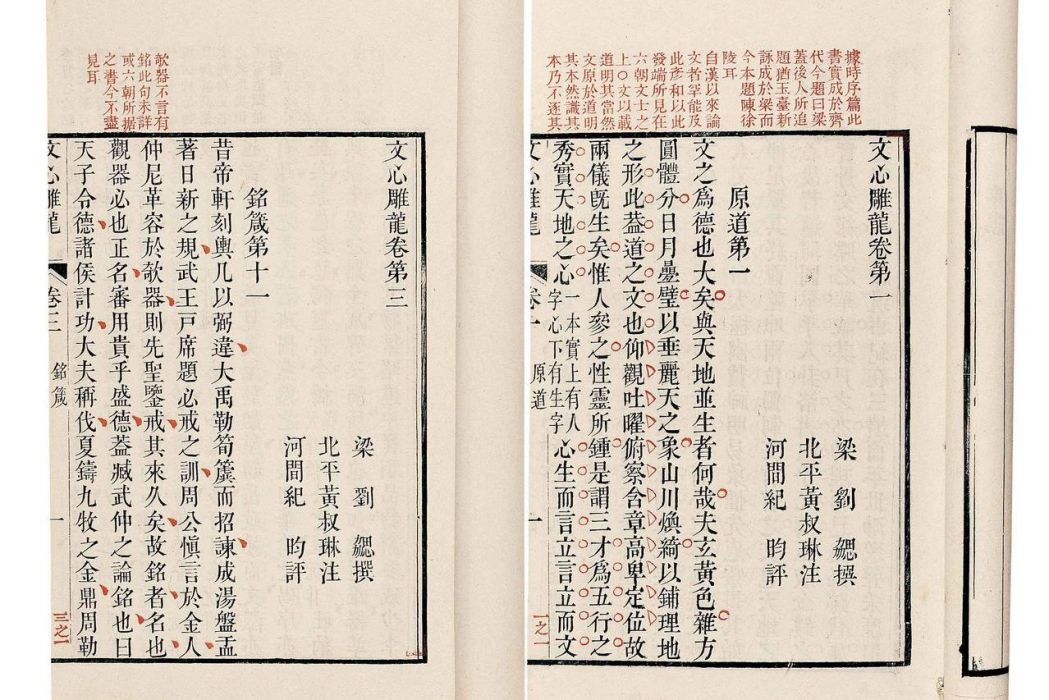 據時序篇此
書實成於齊
代今題曰梁
蓋後人所追
題猶玉臺新
詠成於梁而
今本題陳徐
陵耳
自漢以來論
文者罕能及
此彥和以此
發端所見在
六朝文士之
上○文以載
道明其當然
文原於道明
其本然識其
本乃不逐其
文心雕龍卷第一
梁 劉 勰撰
北平黃叔琳注
河間紀 昀評
原道第一
文之爲德也大矣與天地並生者何哉夫玄黃色雜方
圓體分日月疊璧以垂麗天之象山川煥綺以鋪理地
之形此葢道之文也仰觀吐曜俯察含章高卑定位故
兩儀旣生矣惟人參之性靈所鍾是謂三才爲五行之
秀實天地之心一本實上有人字心下有生字心生而言立言立而文
文心雕龍 卷一 原道 一 一之一
欹器不言有
銘此句未詳
或六朝所據
之書今不盡
見耳
文心雕龍卷第三
梁 劉 勰撰
北平黃叔琳注
河間紀 昀評
銘箴第十一
昔帝軒刻輿几以弼違大禹勒筍簴而招諫成湯盤盂
著日新之規武王戶席題必戒之訓周公愼言於金人
仲尼革容於欹器則先聖鑒戒其來久矣故銘者名也
觀器必也正名審用貴乎盛德葢臧武仲之論銘也曰
天子令德諸侯計功大夫稱伐夏鑄九牧之金鼎周勒
文心雕龍 卷三 銘箴 一 三之一